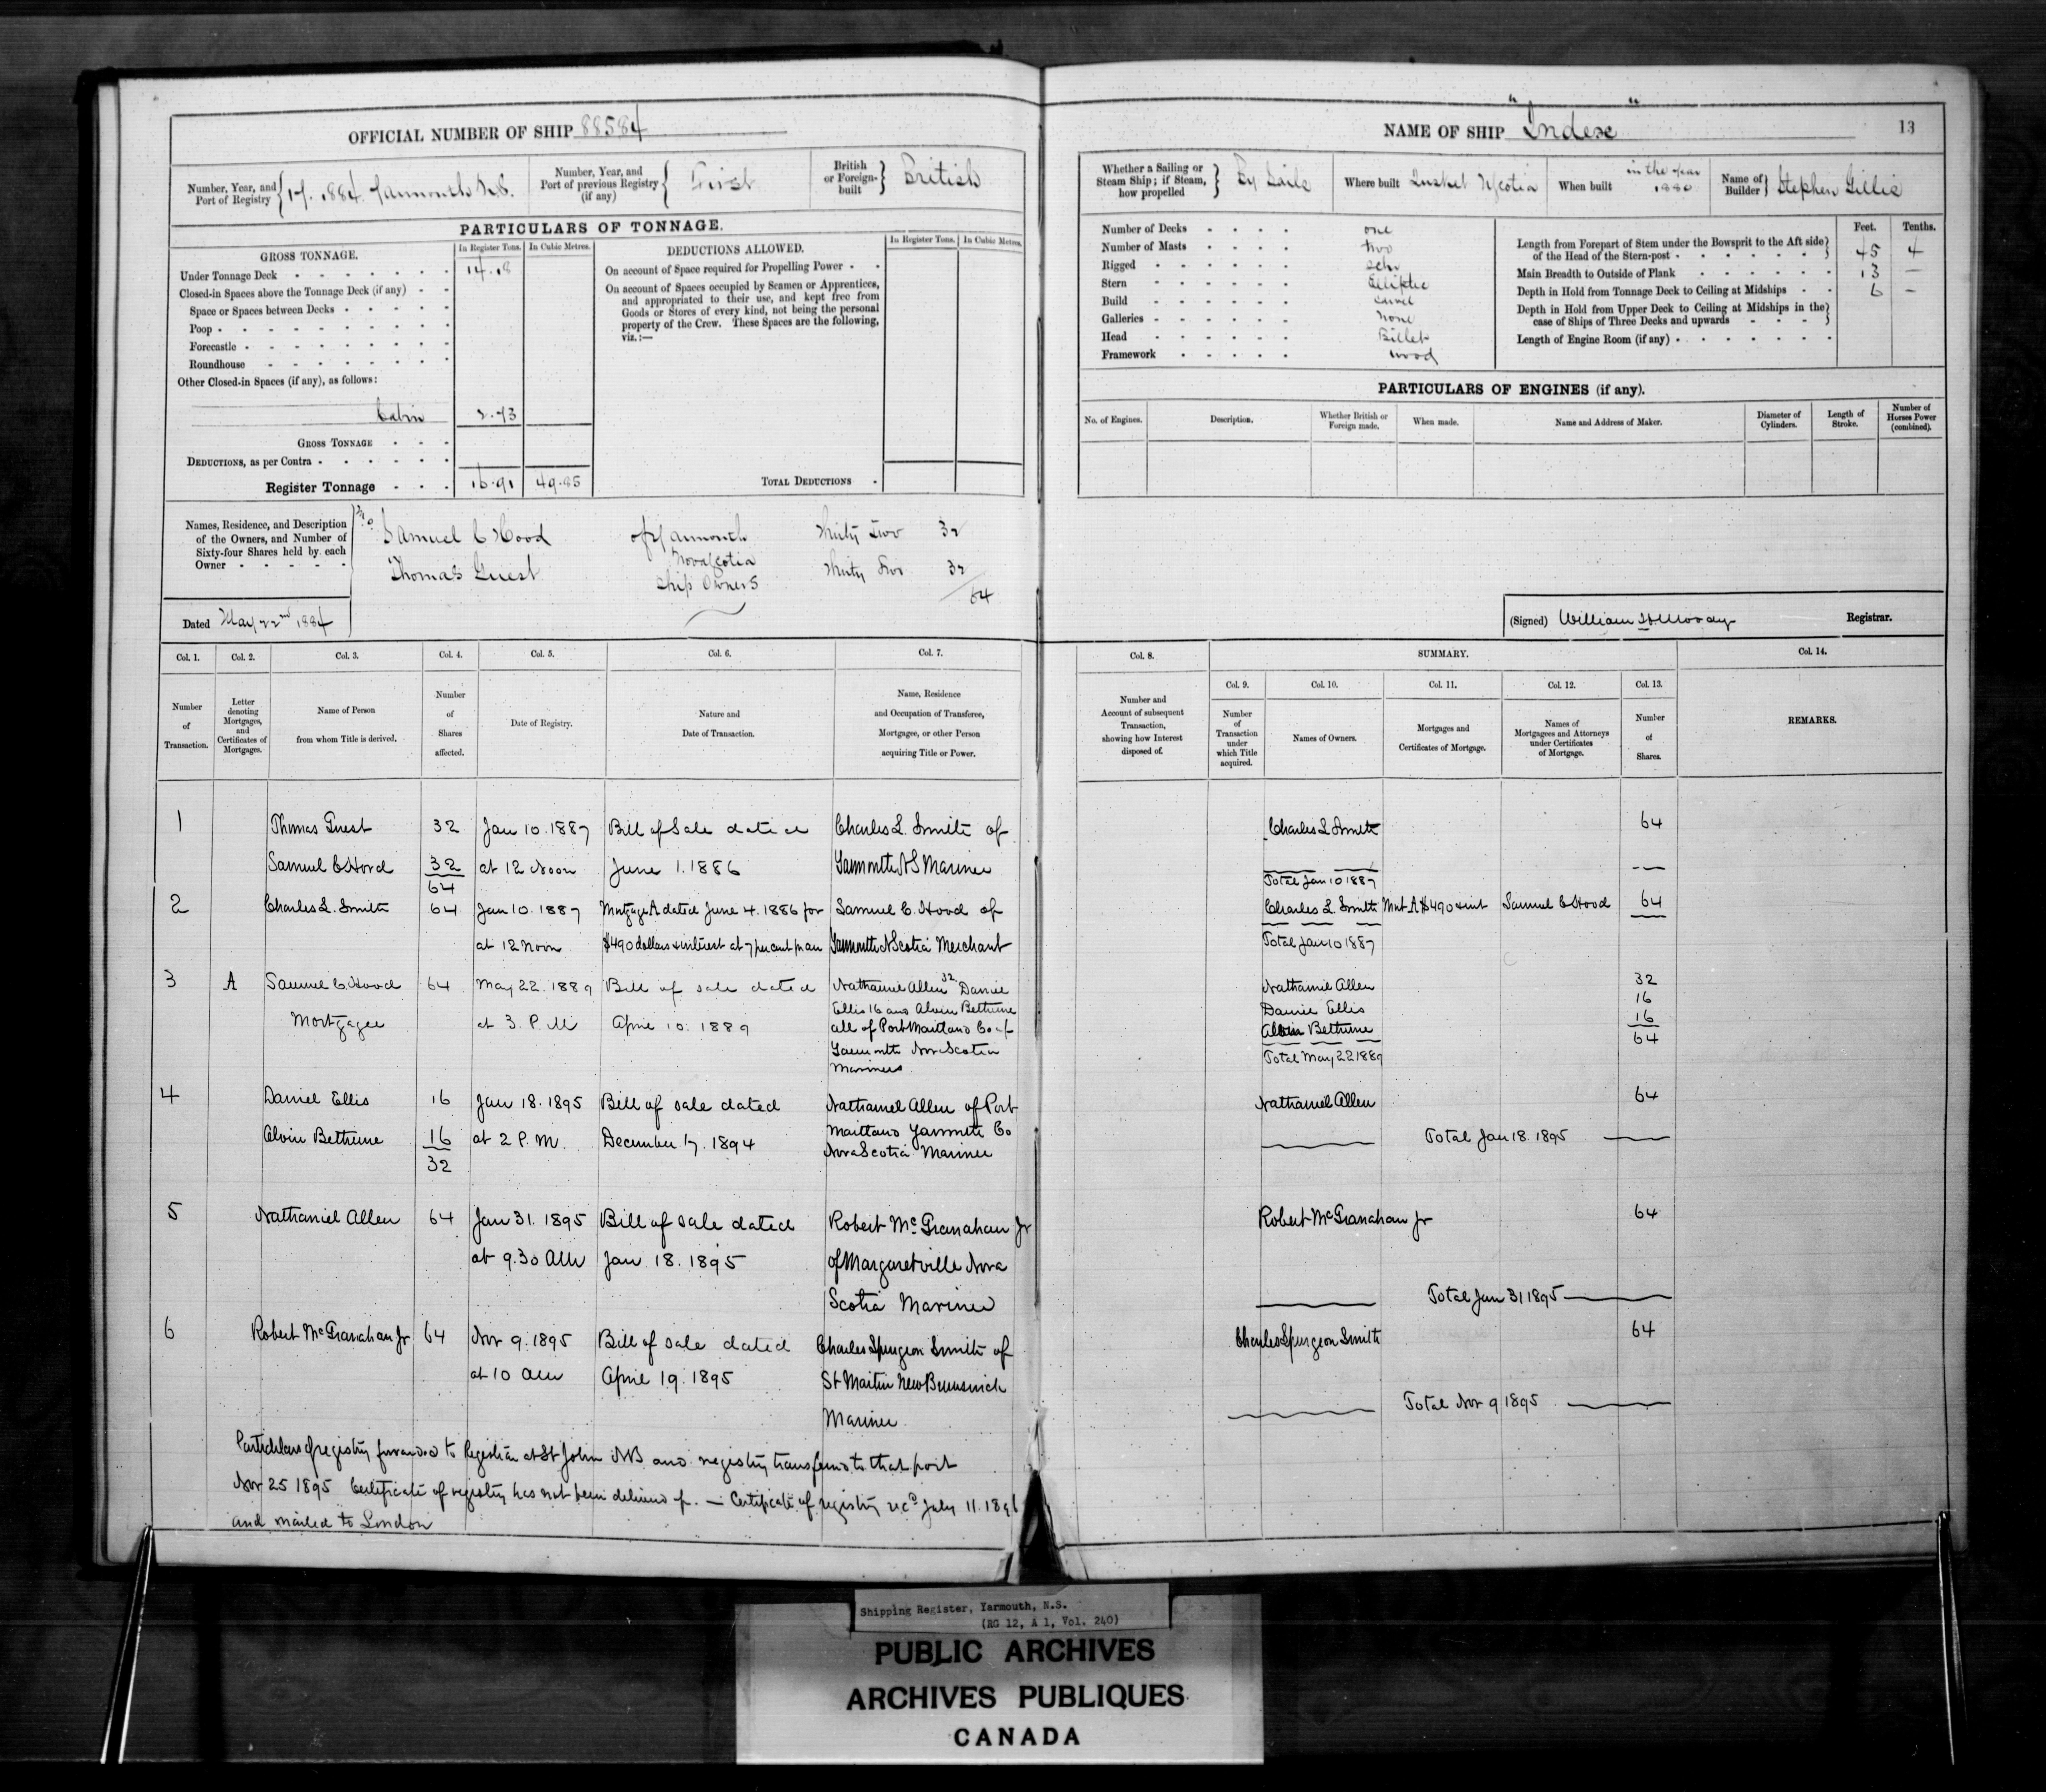 OFFICIAL NUMBER OF SHIP 88584
Number, Year, and Port of Registry 17. 1884. Yarmouth N.S.
Number, Year, and Port of previous Registry (if any) First
British or Foreign-built British
PARTICULARS OF TONNAGE.
GROSS TONNAGE. In Register Tons. In Cubic Metres.
Under Tonnage Deck 14.18
Closed-in Spaces above the Tonnage Deck (if any)
Space or Spaces between Decks
Poop
Forecastle
Roundhouse
Other Closed-in Spaces (if any), as follows:
Cabin 2.73
GROSS TONNAGE
DEDUCTIONS, as per Contra
Register Tonnage 16.91 49.85
DEDUCTIONS ALLOWED. In Register Tons. In Cubic Metres.
On account of Space required for Propelling Power
On account of Spaces occupied by Seamen or Apprentices,
and appropriated to their use, and kept free from
Goods or Stores of every kind, not being the personal
property of the Crew. These Spaces are the following,
viz.:—
TOTAL DEDUCTIONS
Names, Residence, and Description
of the Owners, and Number of
Sixty-four Shares held by each
Owner
Samuel C Hood of Yarmouth Thirty Two 32
Nova Scotia
Thomas Guest Thirty Two 32
Ship Owners
64
Dated May 22nd 1884
NAME OF SHIP "Index" 13
Whether a Sailing or Steam Ship; if Steam, how propelled By Sails
Where built Tusket N Scotia
When built in the year 1880
Name of Builder Stephen Gillis
Number of Decks one
Number of Masts two
Rigged Schr
Stern Elliptic
Build Carvel
Galleries None
Head Billet
Framework wood
Feet. Tenths.
Length from Forepart of Stem under the Bowsprit to the Aft side
of the Head of the Stern-post 45 4
Main Breadth to Outside of Plank 13 —
Depth in Hold from Tonnage Deck to Ceiling at Midships 6 —
Depth in Hold from Upper Deck to Ceiling at Midships in the
case of Ships of Three Decks and upwards
Length of Engine Room (if any)
PARTICULARS OF ENGINES (if any).
No. of Engines. Description. Whether British or Foreign made. When made. Name and Address of Maker. Diameter of Cylinders. Length of Stroke. Number of Horses Power (combined).
(Signed) William H Moody Registrar.
Col. 1. Col. 2. Col. 3. Col. 4. Col. 5. Col. 6. Col. 7.
Number of Transaction.
Letter denoting Mortgages, and Certificates of Mortgages.
Name of Person from whom Title is derived.
Number of Shares affected.
Date of Registry.
Nature and Date of Transaction.
Name, Residence and Occupation of Transferee, Mortgagee, or other Person acquiring Title or Power.
Col. 8. SUMMARY. Col. 14.
Col. 9. Col. 10. Col. 11. Col. 12. Col. 13.
Number and Account of subsequent Transaction, showing how Interest disposed of.
Number of Transaction under which Title acquired.
Names of Owners.
Mortgages and Certificates of Mortgage.
Names of Mortgagees and Attorneys under Certificates of Mortgage.
Number of Shares.
REMARKS.
1 Thomas Guest 32 Jan 10. 1887 Bill of Sale dated Charles L. Smith of
Samuel C Hood 32 at 12 Noon June 1. 1886 Yarmouth N S Mariner
64
2 Charles L. Smith 64 Jan 10. 1887 Mortgage A dated June 4. 1886 for Samuel C. Hood of
at 12 Noon $490 dollars & interest at 7 per cent pr an Yarmouth N Scotia Merchant
3 A Samuel C. Hood 64 May 22. 1889 Bill of sale dated Nathaniel Allen 32 Daniel
Ellis 16 and Alvin Bethune
Mortgagee at 3. P. M April 10. 1889 all of Port Maitland Co of
Yarmouth Nova Scotia
Mariners
4 Daniel Ellis 16 Jan 18. 1895 Bill of sale dated Nathaniel Allen of Port
Alvin Bethune 16 at 2 P. M. December 17. 1894 Maitland Yarmouth Co
32 Nova Scotia Mariner
5 Nathaniel Allen 64 Jan 31. 1895 Bill of sale dated Robert McGranahan Jr
at 9.30 AM Jan 18. 1895 of Margaretville Nova
Scotia Mariner
6 Robert McGranahan Jr 64 Nov 9. 1895 Bill of sale dated Charles Spurgeon Smith of
at 10 AM April 19. 1895 St Martin New Brunswick
Mariner
Particulars of registry forwarded to Registrar at St John NB and registry transferred to that port
Nov 25 1895 Certificate of registry has not been delivered up. — Certificate of registry recd July 11. 1896
and mailed to London
Charles L Smith 64
Total Jan 10 1887
Charles L. Smith Mort A $490 & int Samuel C Hood 64
Total Jan 10 1887
Nathaniel Allen 32
Daniel Ellis 16
Alvin Bethune 16
64
Total May 22 1889
Nathaniel Allen 64
Total Jan 18. 1895
Robert McGranahan Jr 64
Total Jan 31 1895
Charles Spurgeon Smith 64
Total Nov 9 1895
Shipping Register, Yarmouth, N.S.
(RG 12, A 1, Vol. 240)
PUBLIC ARCHIVES
ARCHIVES PUBLIQUES
CANADA